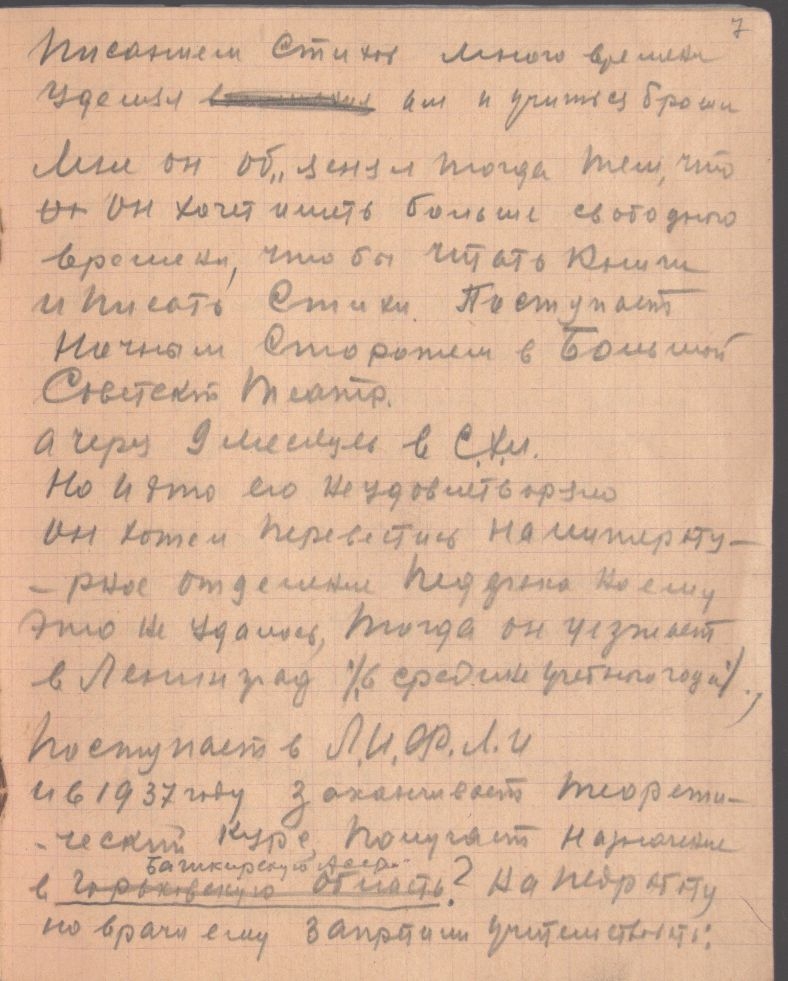 7
Писанием стихов много времени
уделял им и учиться броси
Мне он об„яснял тогда тем, что
он хочет иметь больше свободного
времени, что бы читать книги
и писать Стихи. Поступает
Ночным Сторожем в Большой
Советский театр.
а через 9 месяцев в С.Х.И.
Но и это его не удовлетворяло
он хотел перевестись на литерату-
- рное отделение Педфака но ему
это не удалось, тогда он уезжает
в Ленинград /в средине учебного года/,
Поступает в Л.И.Ф.Л.И
и в 1937 году заканчивает теорети-
- ческий курс, Получает назначение
Башкирскую Асср
в Горьковскую область? на педработу
но врачи ему запретили учительствовать: